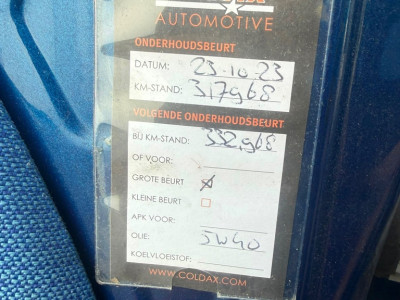 AUTOMOTIVE
ONDERHOUDSBEURT
DATUM: 23-10-23
KM-STAND: 317968
VOLGENDE ONDERHOUDSBEURT
BIJ KM-STAND: 332.968
OF VOOR:
GROTE BEURT
KLEINE BEURT
APK VOOR:
OLIE: 5W40
KOELVLOEISTOF:
WWW.COLDAX.COM